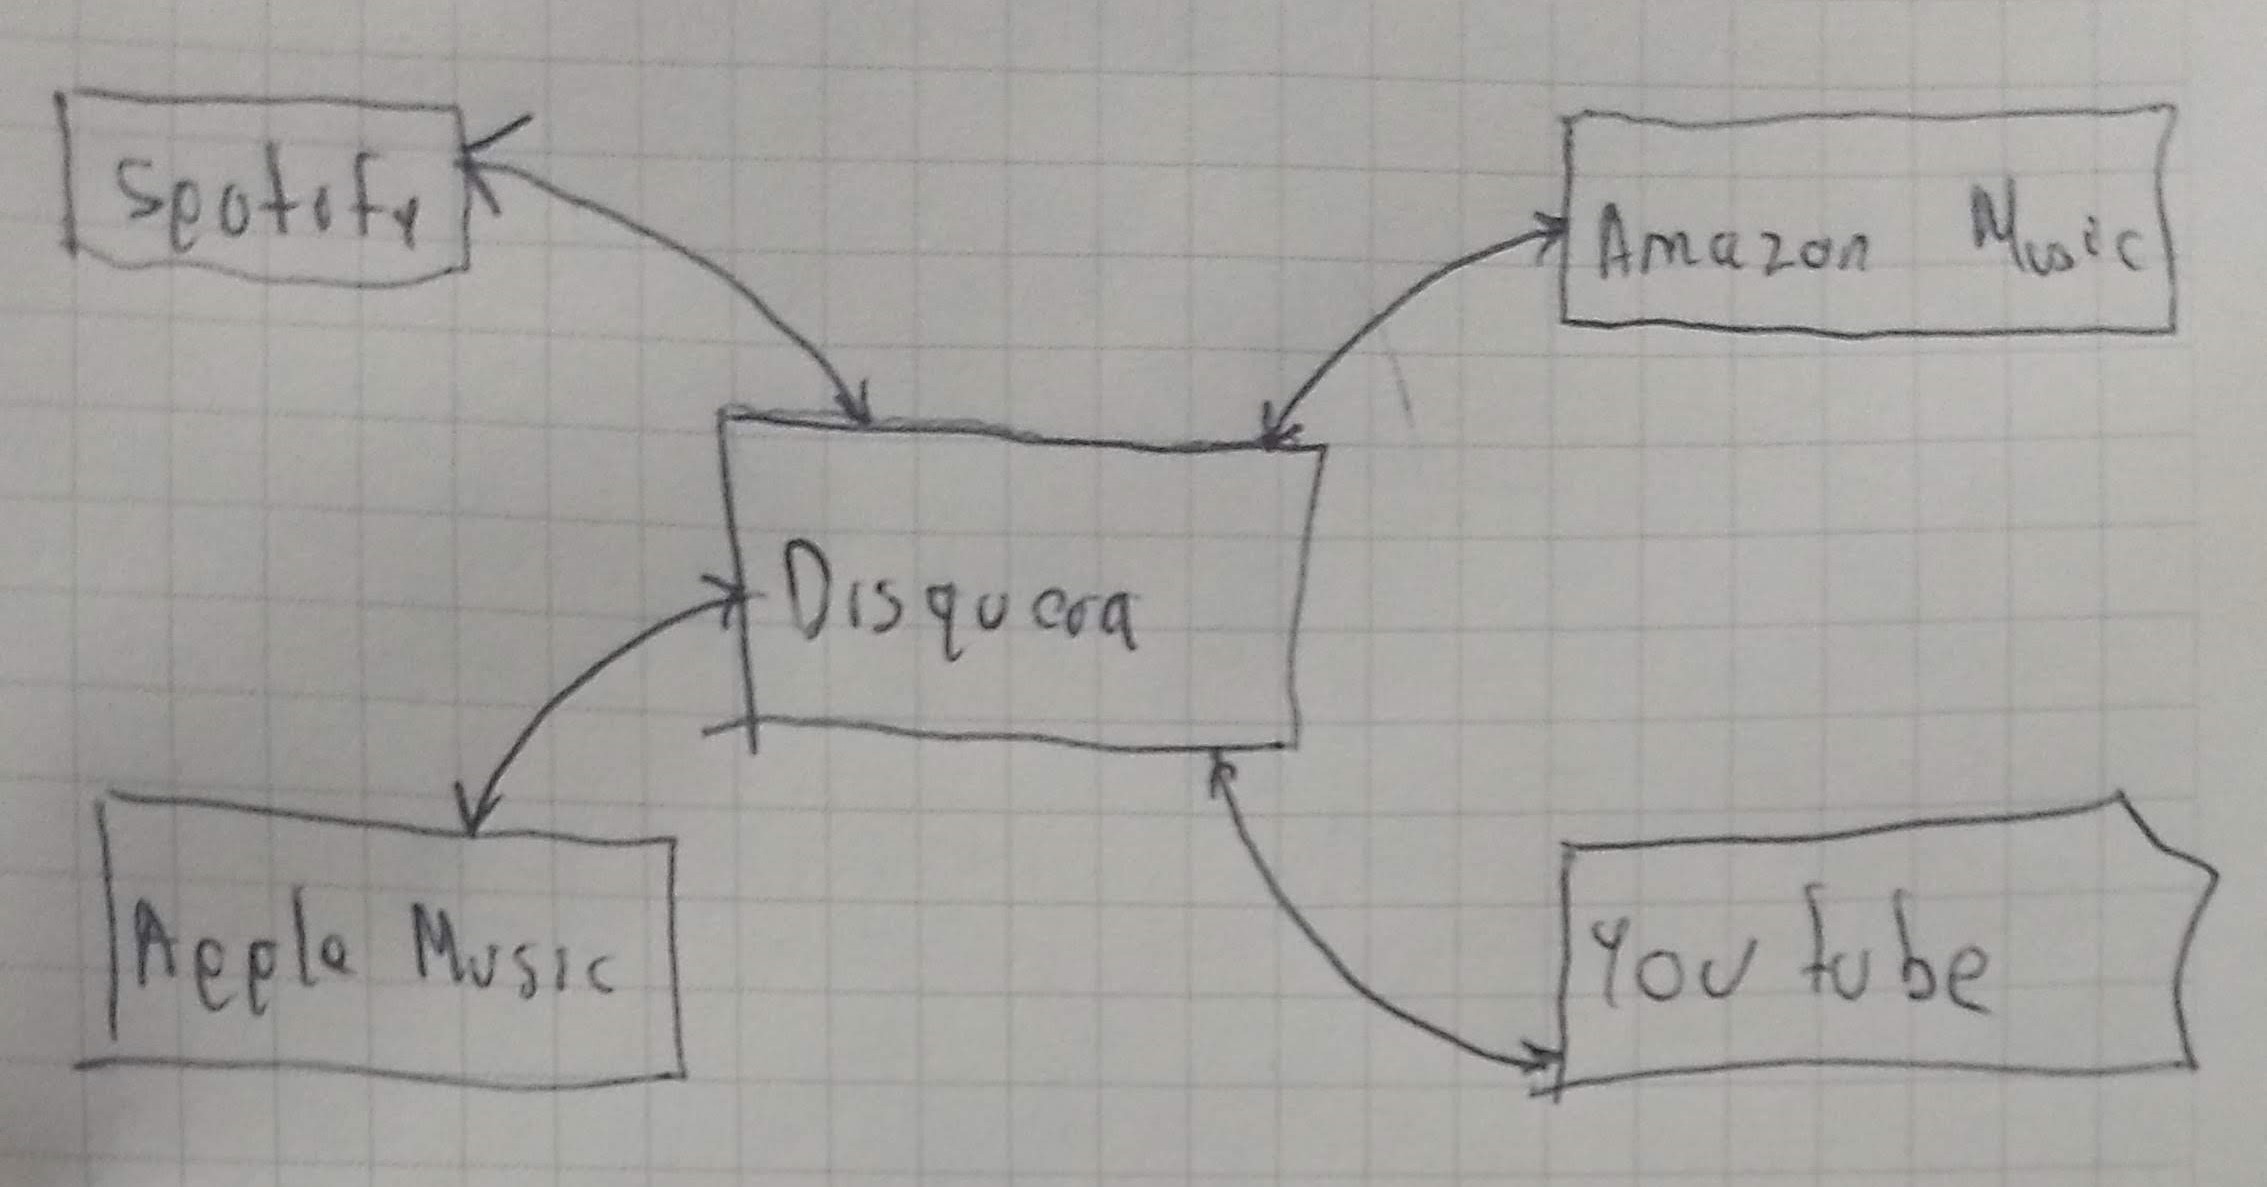 Spotify
Amazon Music
Disquera
Apple Music
You tube